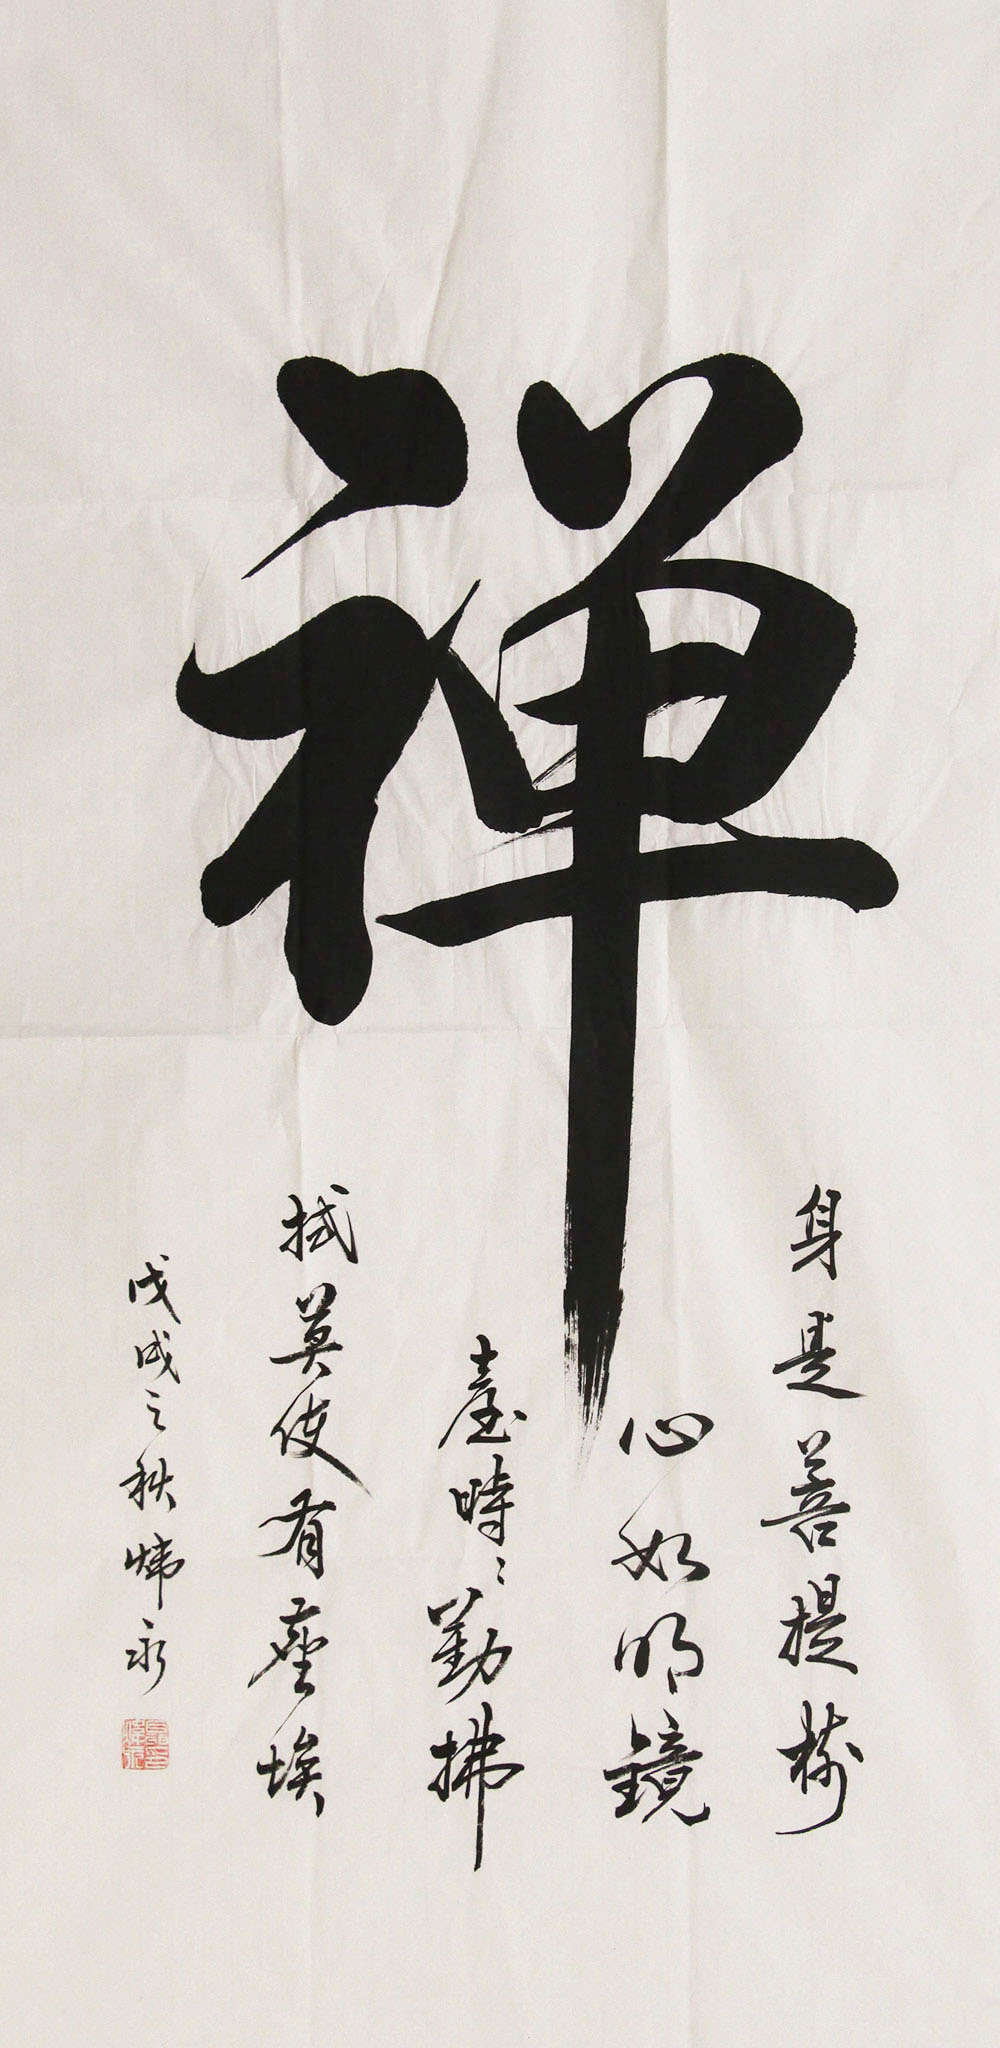 禅
身是菩提樹
心如明鏡
臺時々勤拂
拭莫使有塵埃
戊戌之秋煒永